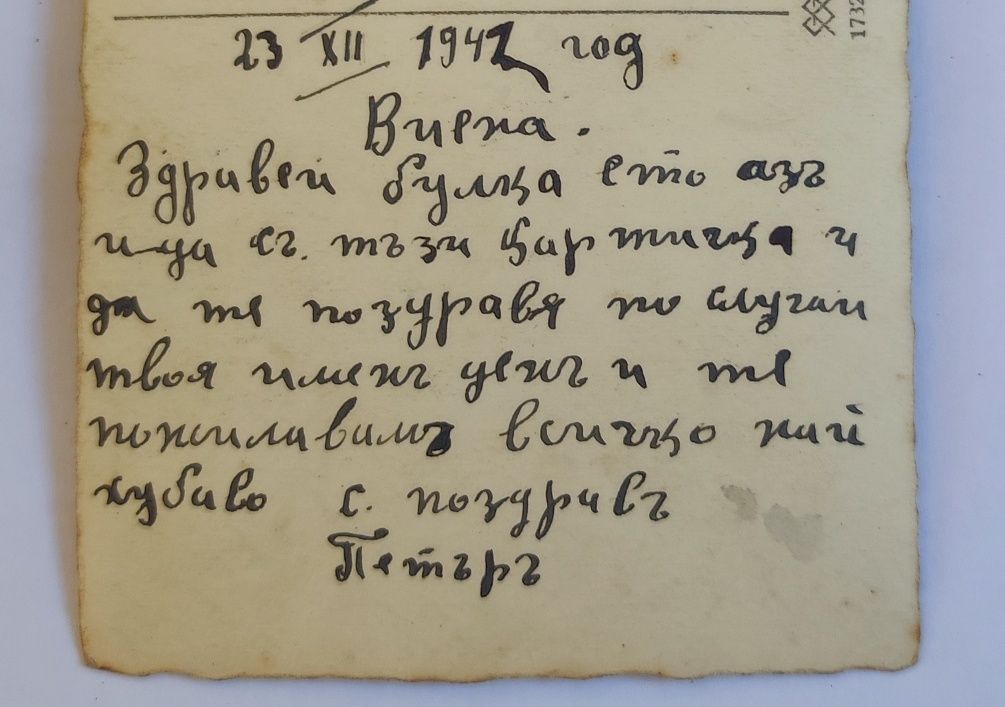 1732
23 XII 1942 год
Виена.
Здравей булка ето азъ
ида съ. тъзи картичка и
да те поздравя по случаи
твоя именъ денъ и те
пожилавамъ всичко най
хубаво с. поздравъ
Петъръ